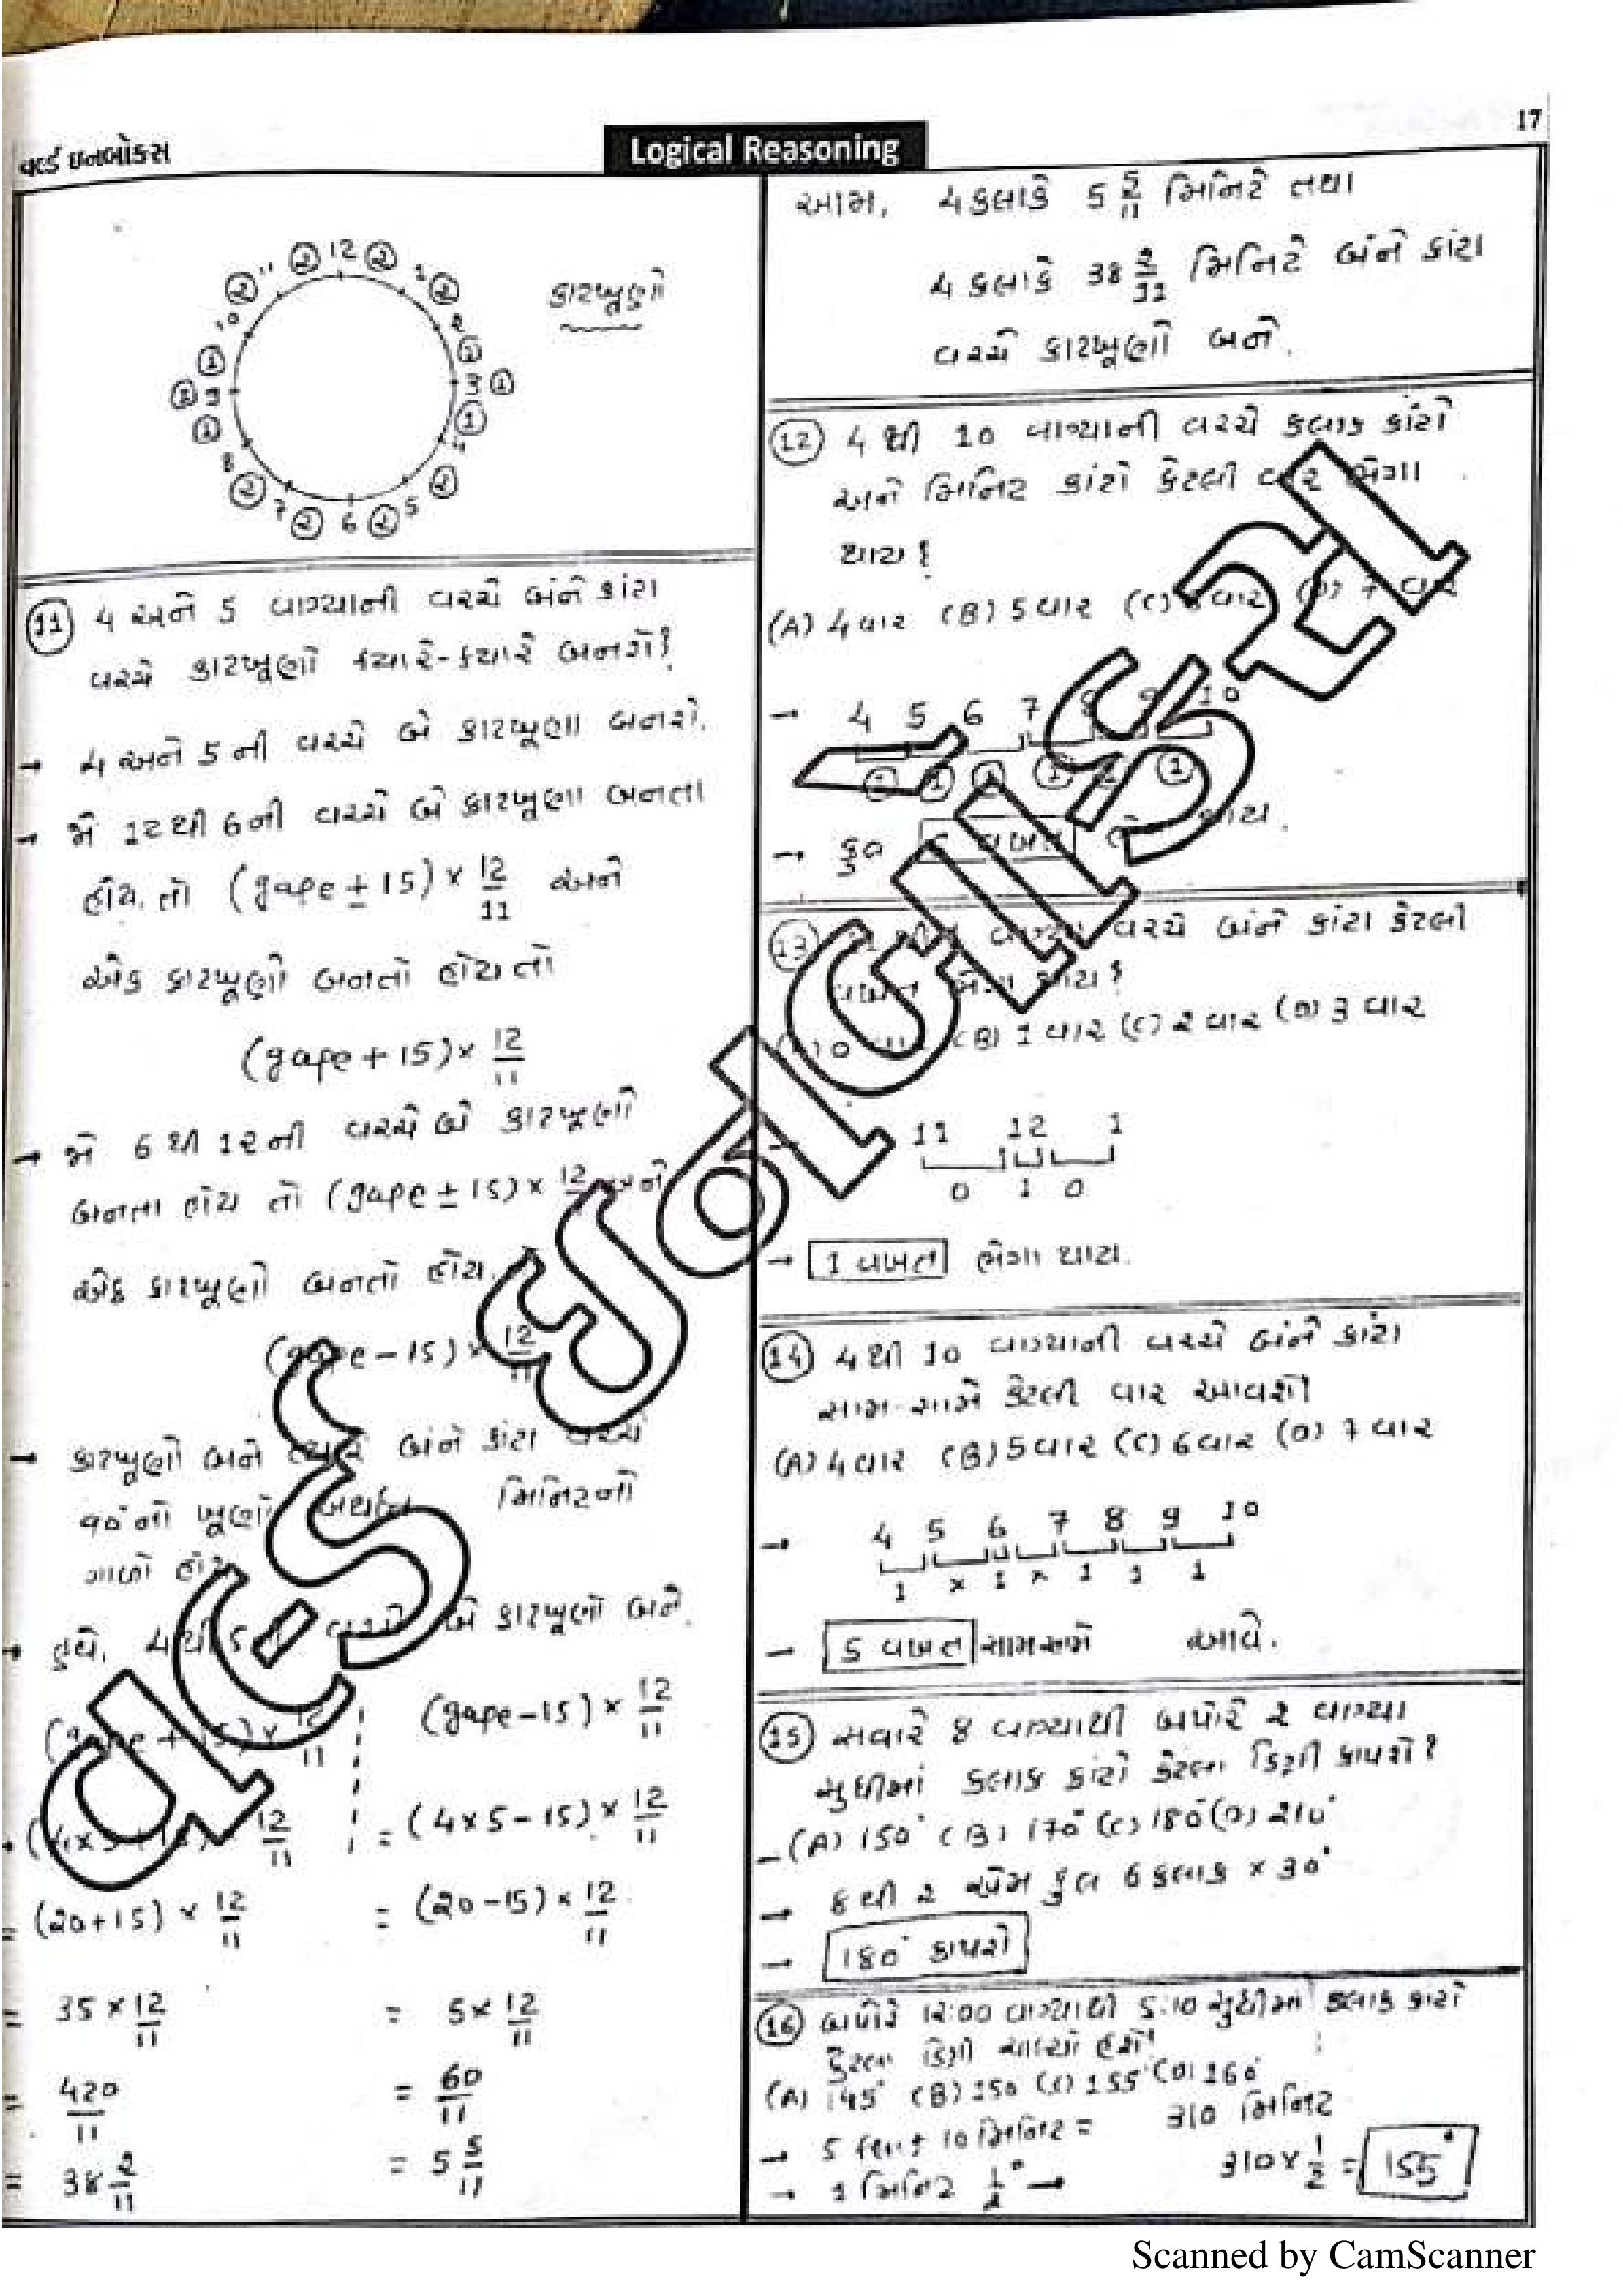 વર્લ્ડ ઇનબોક્સ
Logical Reasoning
17
12
②
②
11
②
②
1
②
10
2
①
①
②
9
3
①
①
①
4
8
②
②
5
7
②
6
②
કાટખૂણો
⑪ 4 અને 5 વાગ્યાની વચ્ચે બંને કાંટા
વચ્ચે કાટખૂણો ક્યારે-ક્યારે બનશે?
→ 4 અને 5 ની વચ્ચે બે કાટખૂણા બનશે.
→ જો 12 થી 6 ની વચ્ચે બે કાટખૂણા બનતા
હોય. તો (gape ± 15) × 12/11 અને
એક કાટખૂણો બનતો હોય તો
(gape + 15) × 12/11
→ જો 6 થી 12 ની વચ્ચે બે કાટખૂણો
બનતા હોય તો (gape ± 15) × 12
એક કાટખૂણો બનતો હોય.
(gape - 15) × 12/11
→ કાટખૂણો બને ત્યારે બંને કાંટા વચ્ચે
90° નો ખૂણો મિનિટનો
ગાળો
→ હવે, 4 થી 5 કાટખૂણો બને.
(gape + 15) × 12/11
(gape - 15) × 12/11
(4 × 5 + 15) × 12/11
= (4 × 5 - 15) × 12/11
= (20 + 15) × 12/11
= (20 - 15) × 12/11
= 35 × 12/11
= 5 × 12/11
= 420/11
= 60/11
= 38 2/11
= 5 5/11
આમ, 4 કલાકે 5 5/11 મિનિટે તથા
4 કલાકે 38 2/11 મિનિટે બંને કાંટા
વચ્ચે કાટખૂણો બને.
⑫ 4 થી 10 વાગ્યાની વચ્ચે કલાક કાંટો
અને મિનિટ કાંટો કેટલી વાર ભેગા
થાય?
(A) 4 વાર (B) 5 વાર (C) વાર (D) 7 વાર
→ 4 5 6 7 8 9 10
① ① ① ① ① ①
→ કુલ 6 વખત થાય.
⑬ વચ્ચે બંને કાંટા કેટલી
વખત ભેગા થાય?
0 (B) 1 વાર (C) 2 વાર (D) 3 વાર
→ 11 12 1
0 1 0
→ 1 વખત ભેગા થાય.
⑭ 4 થી 10 વાગ્યાની વચ્ચે બંને કાંટા
સામ-સામે કેટલી વાર આવશે
(A) 4 વાર (B) 5 વાર (C) 6 વાર (D) 7 વાર
→ 4 5 6 7 8 9 10
1 × 1 × 1 1 1
→ 5 વખત સામસામે આવે.
⑮ સવારે 8 વાગ્યાથી બપોરે 2 વાગ્યા
સુધીમાં કલાક કાંટો કેટલા ડિગ્રી કાપશે?
- (A) 150° (B) 170° (C) 180° (D) 210°
→ 8 થી 2 એમ કુલ 6 કલાક × 30°
→ 180° કાપશે
⑯ બપોરે 12:00 વાગ્યાથી 5:10 સુધીમાં કલાક કાંટો
કેટલા ડિગ્રી ચાલ્યો હશે?
(A) 145° (B) 150 (C) 155° (D) 160°
→ 5 કલાક 10 મિનિટ = 310 મિનિટ
→ 1 મિનિટ 1/2° → 310 × 1/2 = 155°
વર્લ્ડ ઇનબોક્સ
Scanned by CamScanner